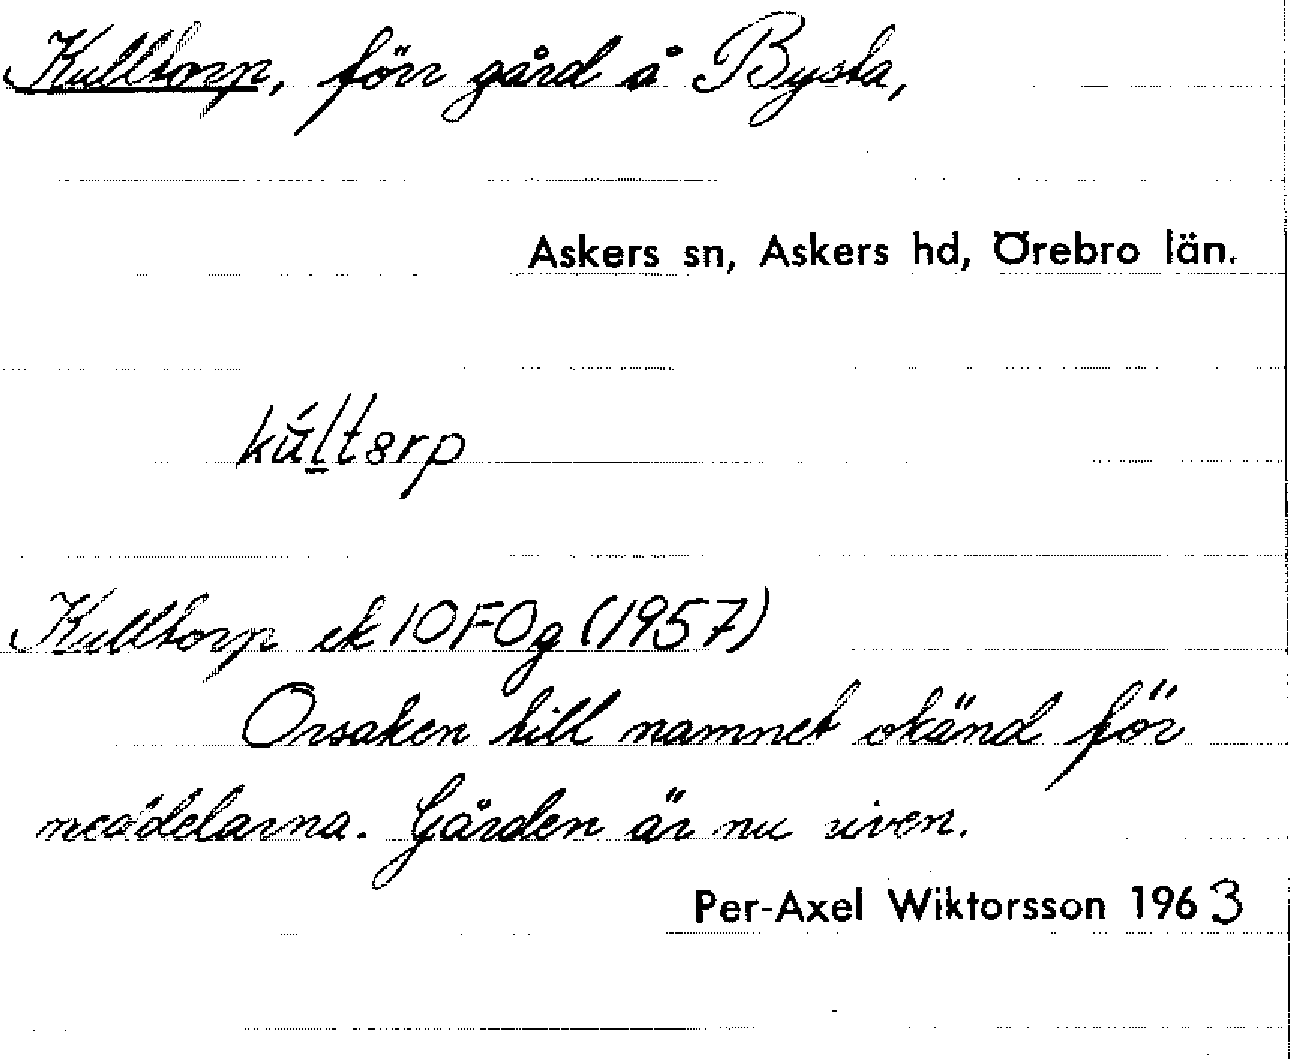 Kulltorp, förr gård å Bysta,
Askers sn, Askers hd, Örebro län.
kúltɜrp
Kulltorp ek 10F0g (1957)
Orsaken till namnet okänd för
meddelarna. Gården är nu riven.
Per-Axel Wiktorsson 1963